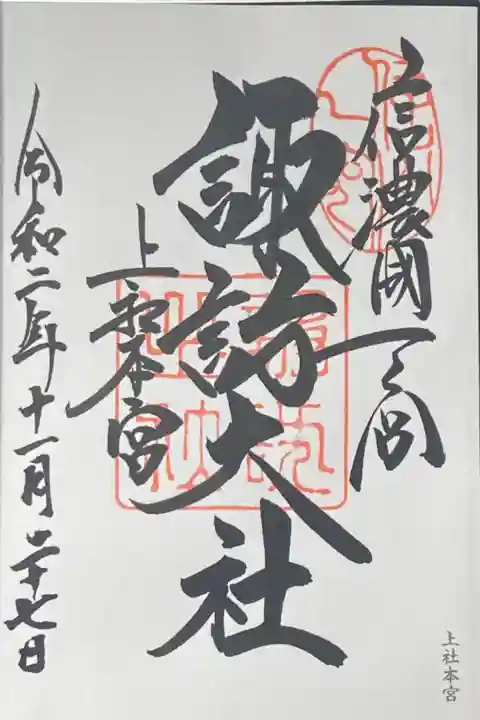 信濃國一之宮
諏訪大社
上社本宮
令和二年十一月二十七日
上社本宮